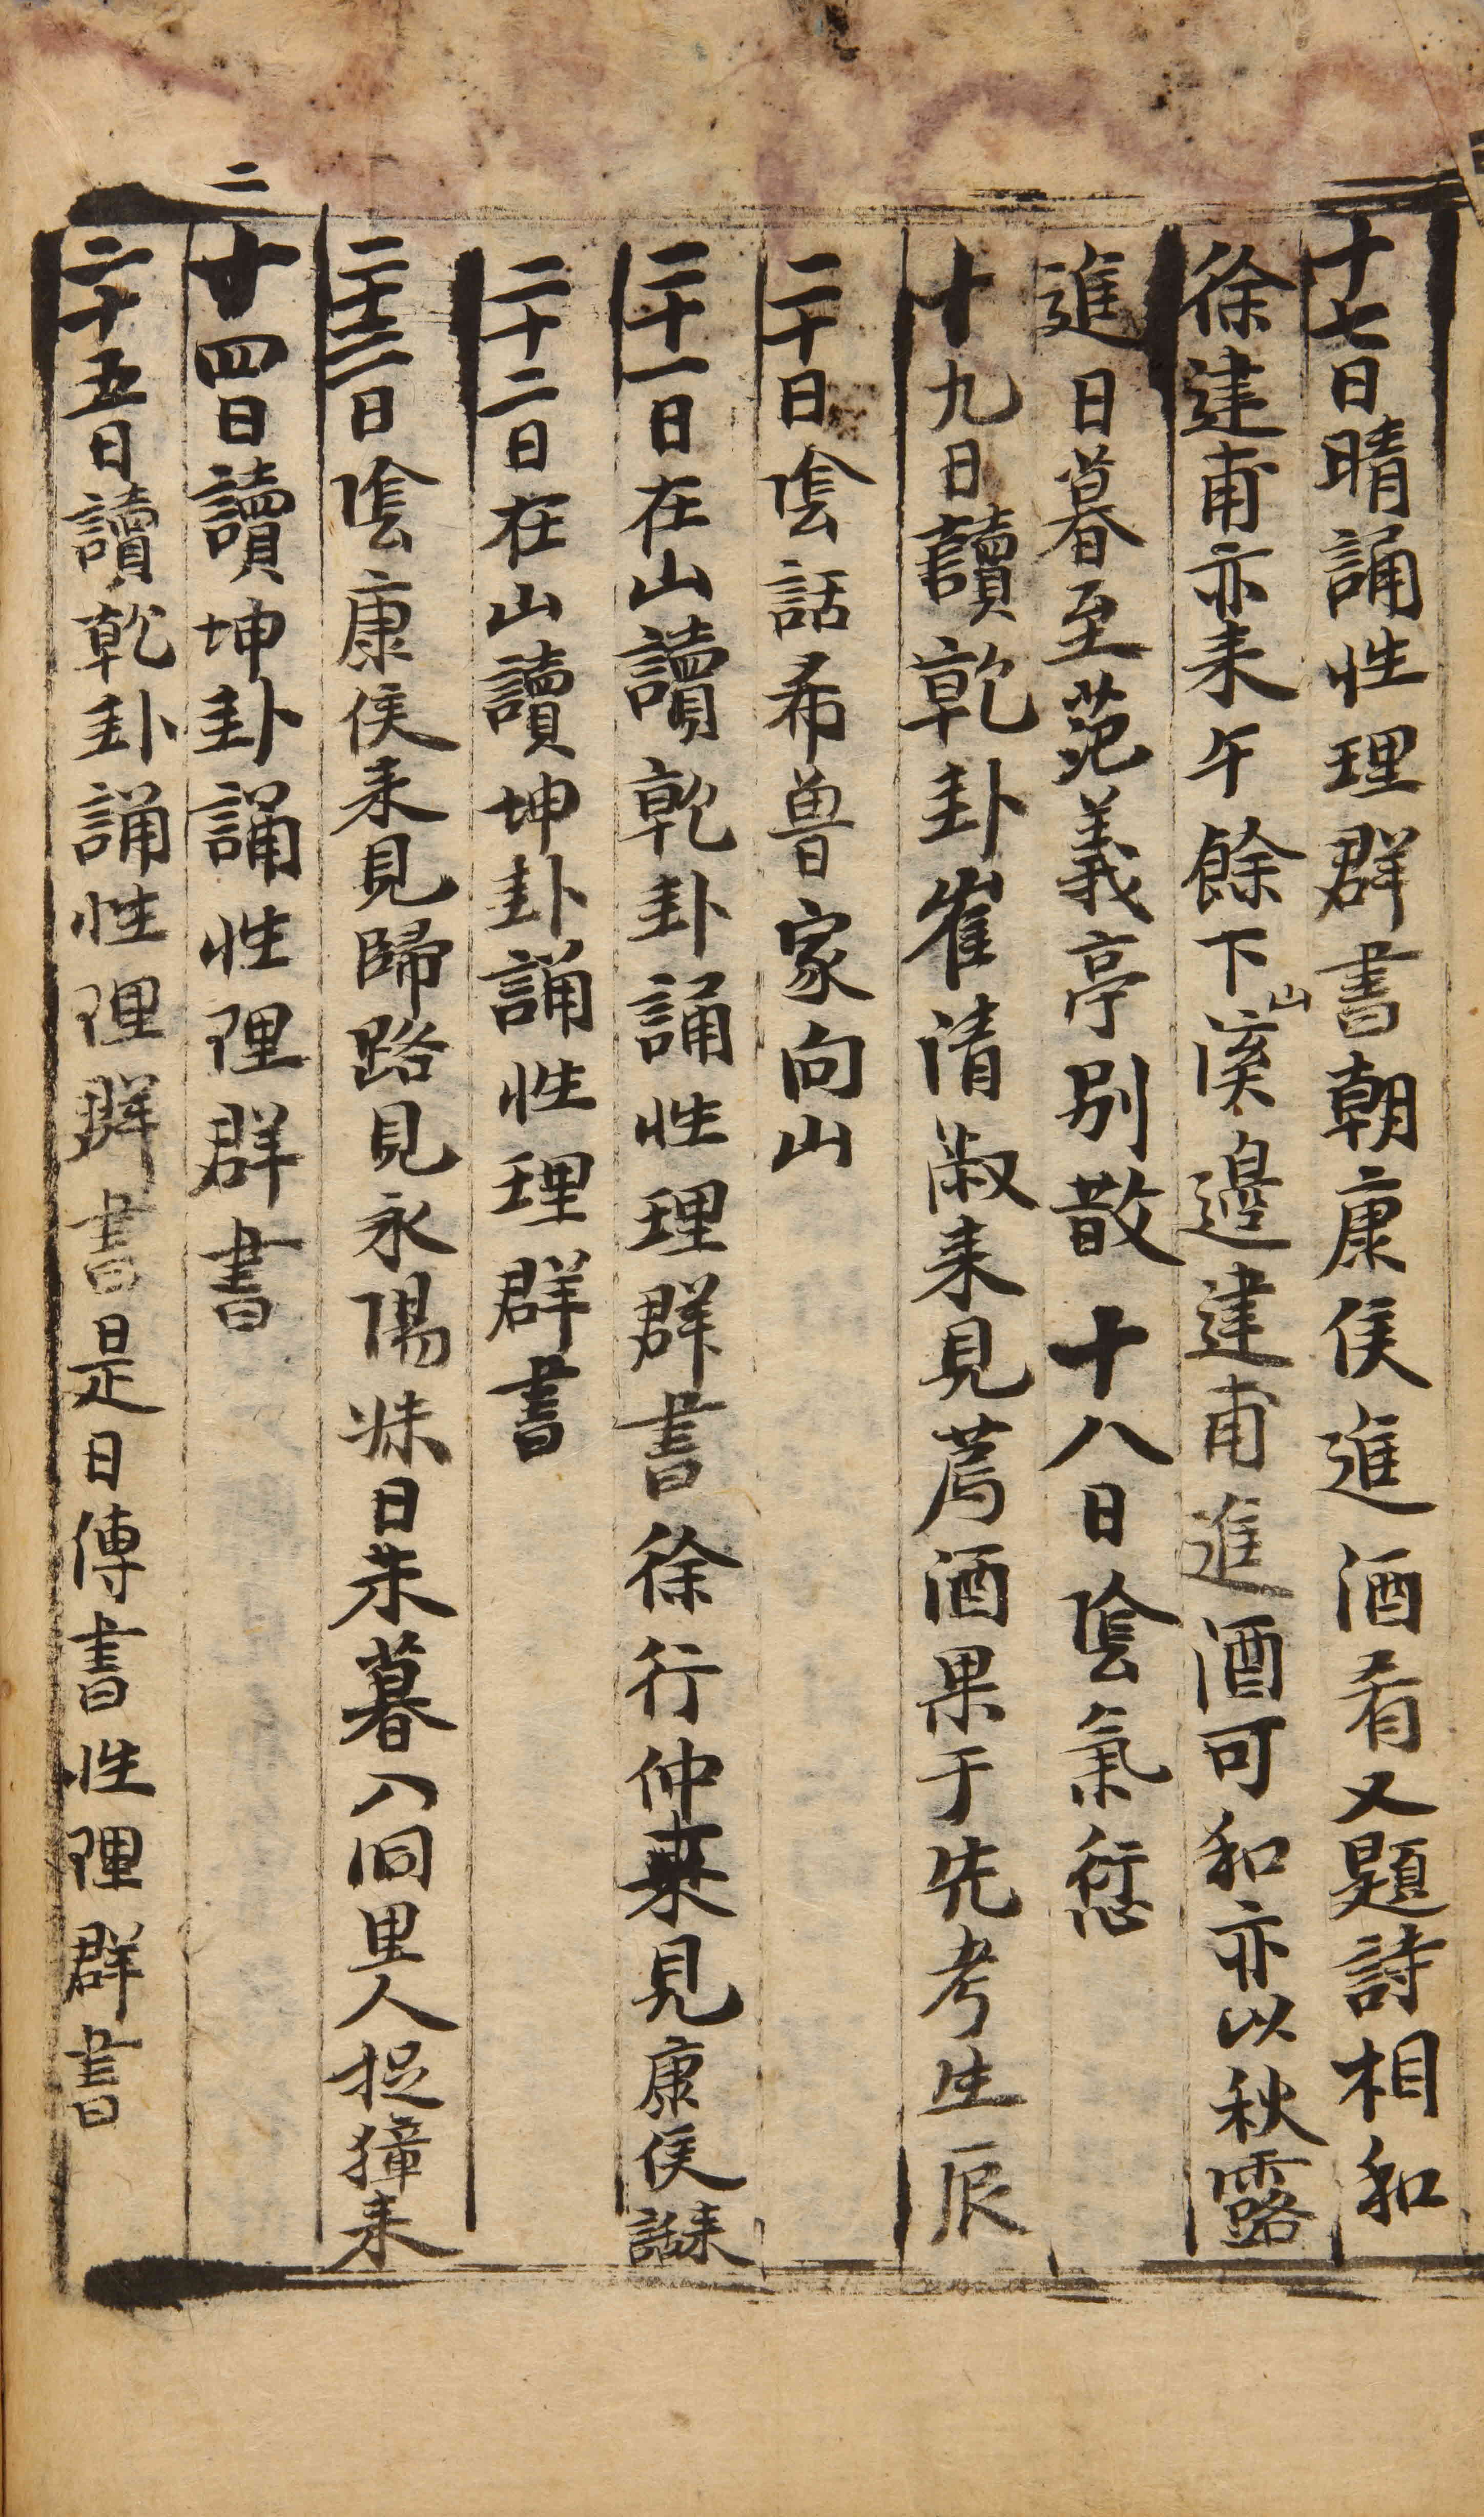 十七日晴誦性理群書朝康侯進酒肴又題詩相和
徐建甫亦来午餘下山溪邊建甫進酒可和亦以秋露
進日暮至范義亭別散 十八日陰氣愆
十九日讀乾卦崔清淑来見薦酒果于先考生辰
二十日陰話希曾家向山
二十一日在山讀乾卦誦性理群書徐行仲来見康侯来話
二十二日在山讀坤卦誦性理群書
二十三日陰康侯来見歸路見永陽妹日未暮入洞里人捉獐来
二十四日讀坤卦誦性理群書
二十五日讀乾卦誦性理群書是日傳書性理群書